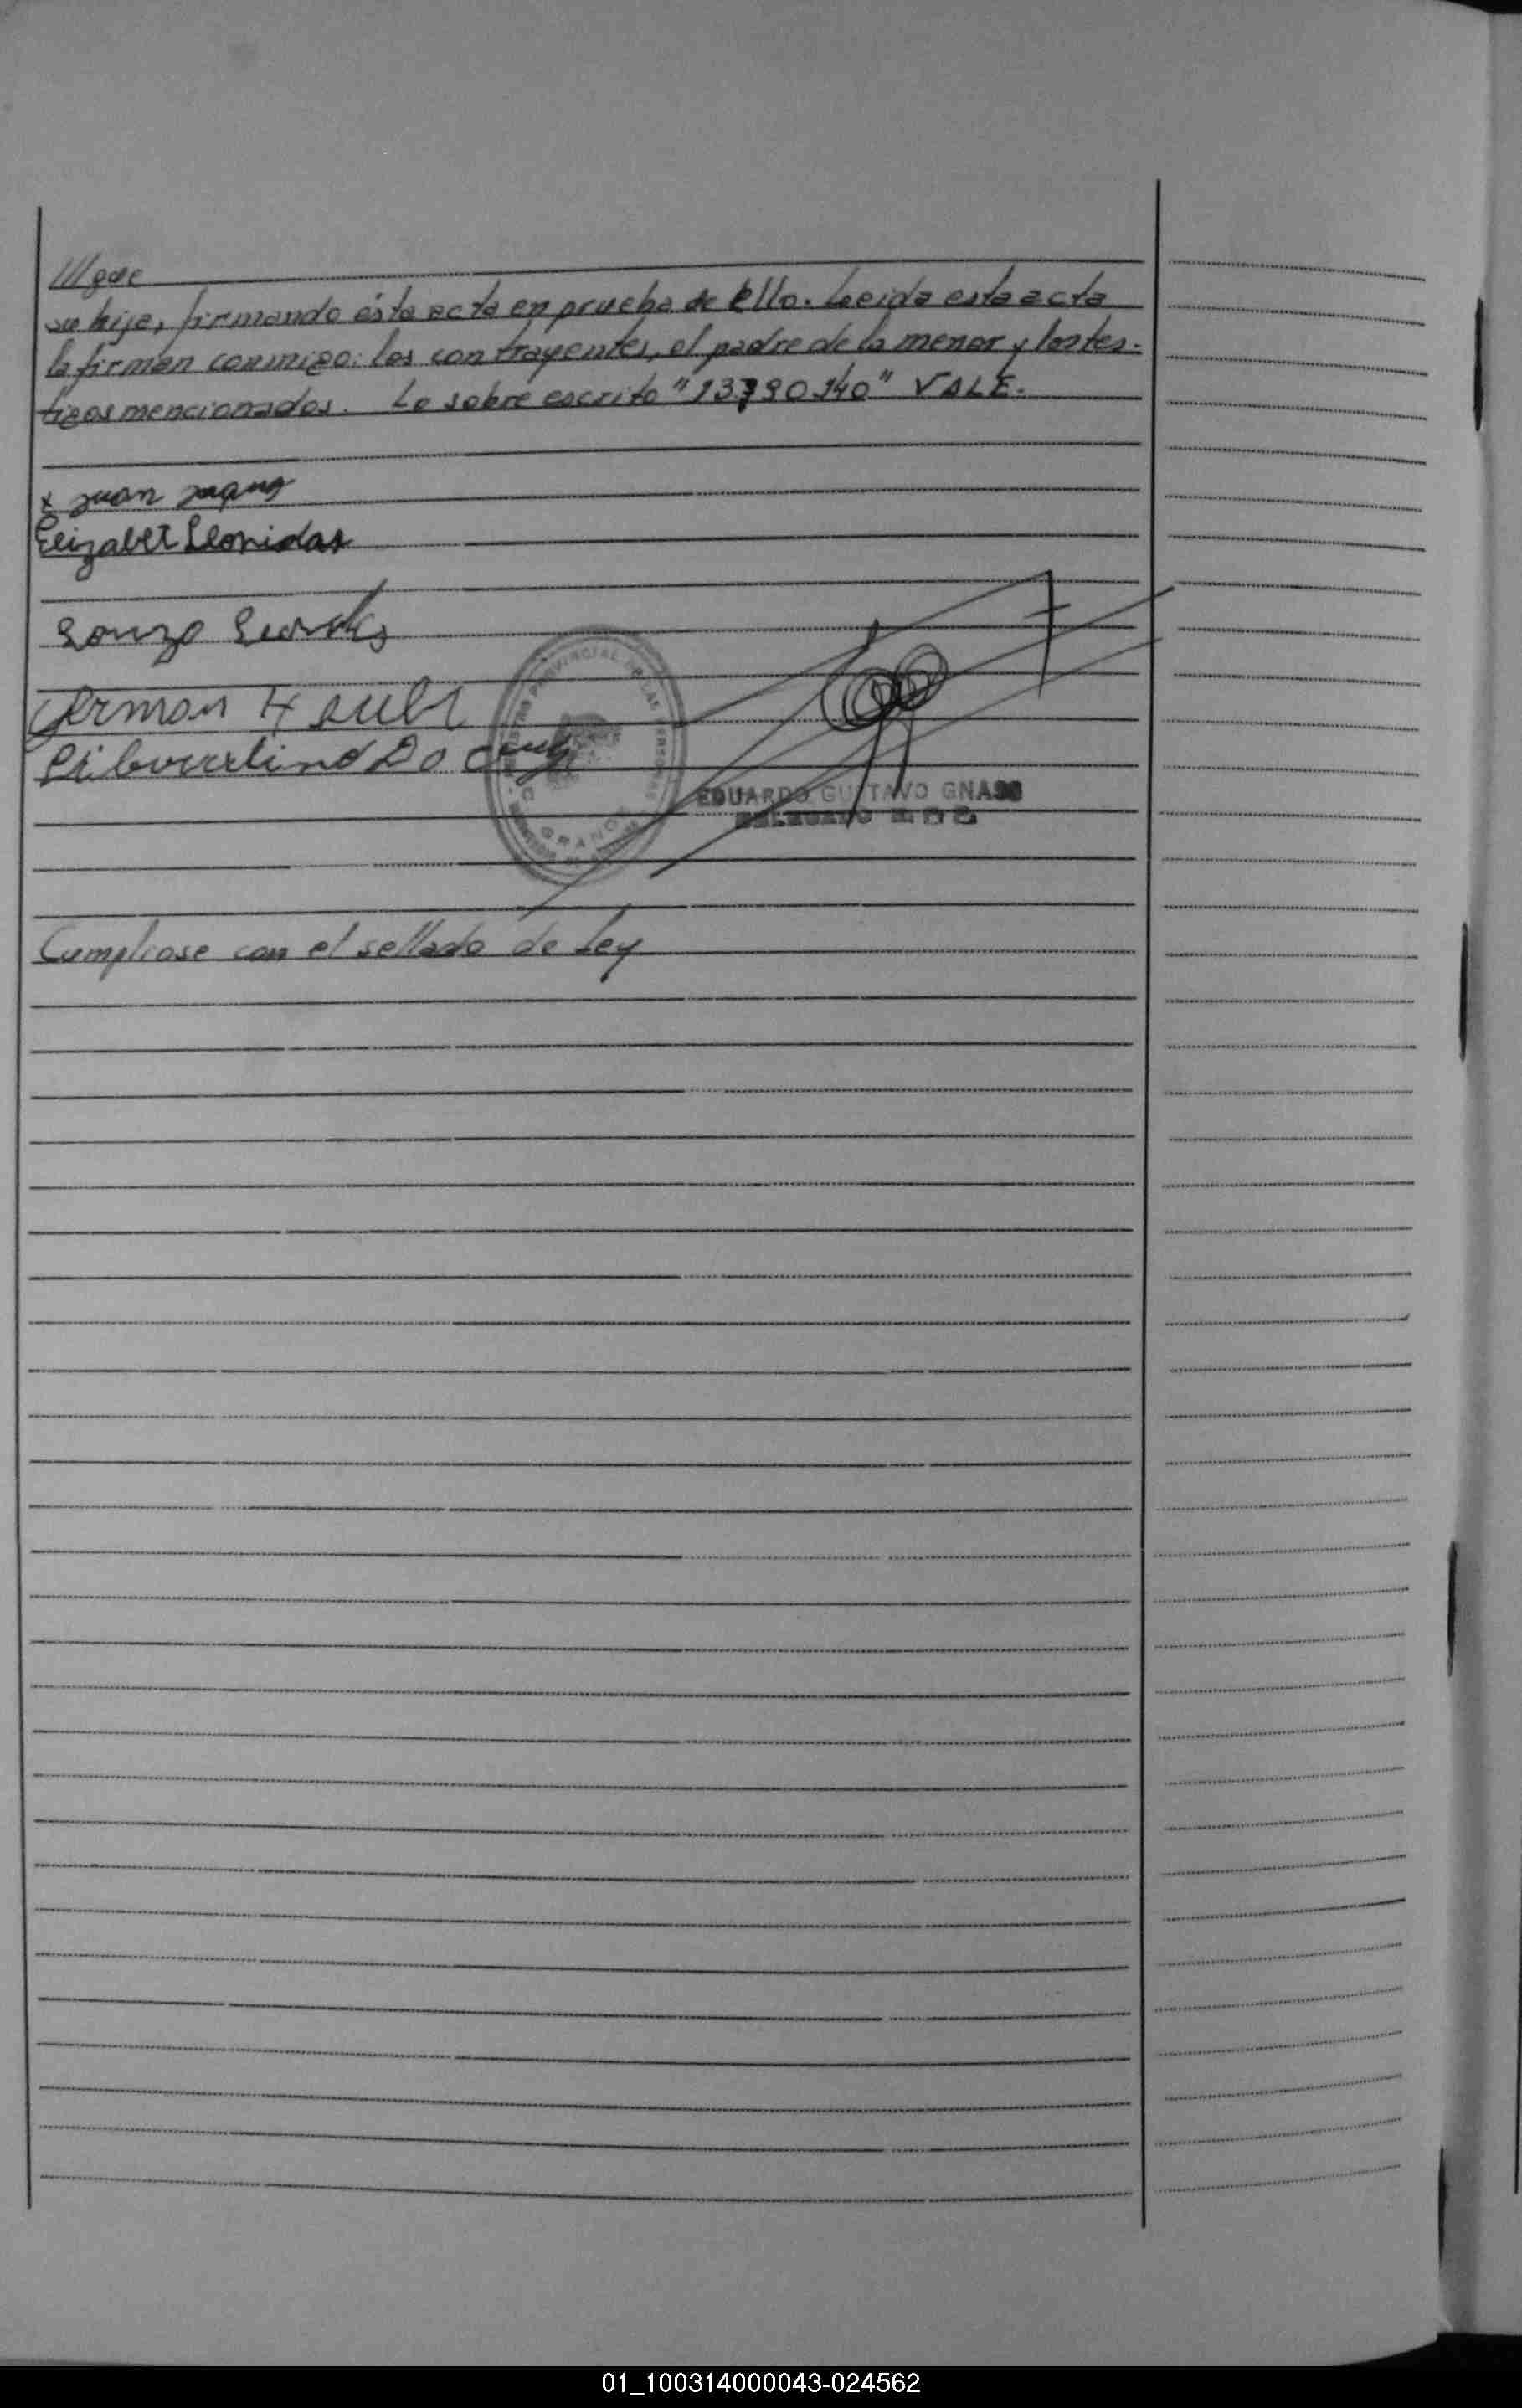 ///que
su hija, firmando ésta acta en prueba de ello. Leida esta acta
la firman conmigo: los contrayentes, el padre de la menor y los tes-
tigos mencionados. Lo sobre escrito "13.790.140" VALE.
x Juan
Elizabet Leonidas
German
Do
REGISTRO PROVINCIAL DE LAS PERSONAS
GRANDE
EDUARDO GUSTAVO GNASS
DELEGADO
Cumpliose con el sellado de Ley
01_100314000043-024562